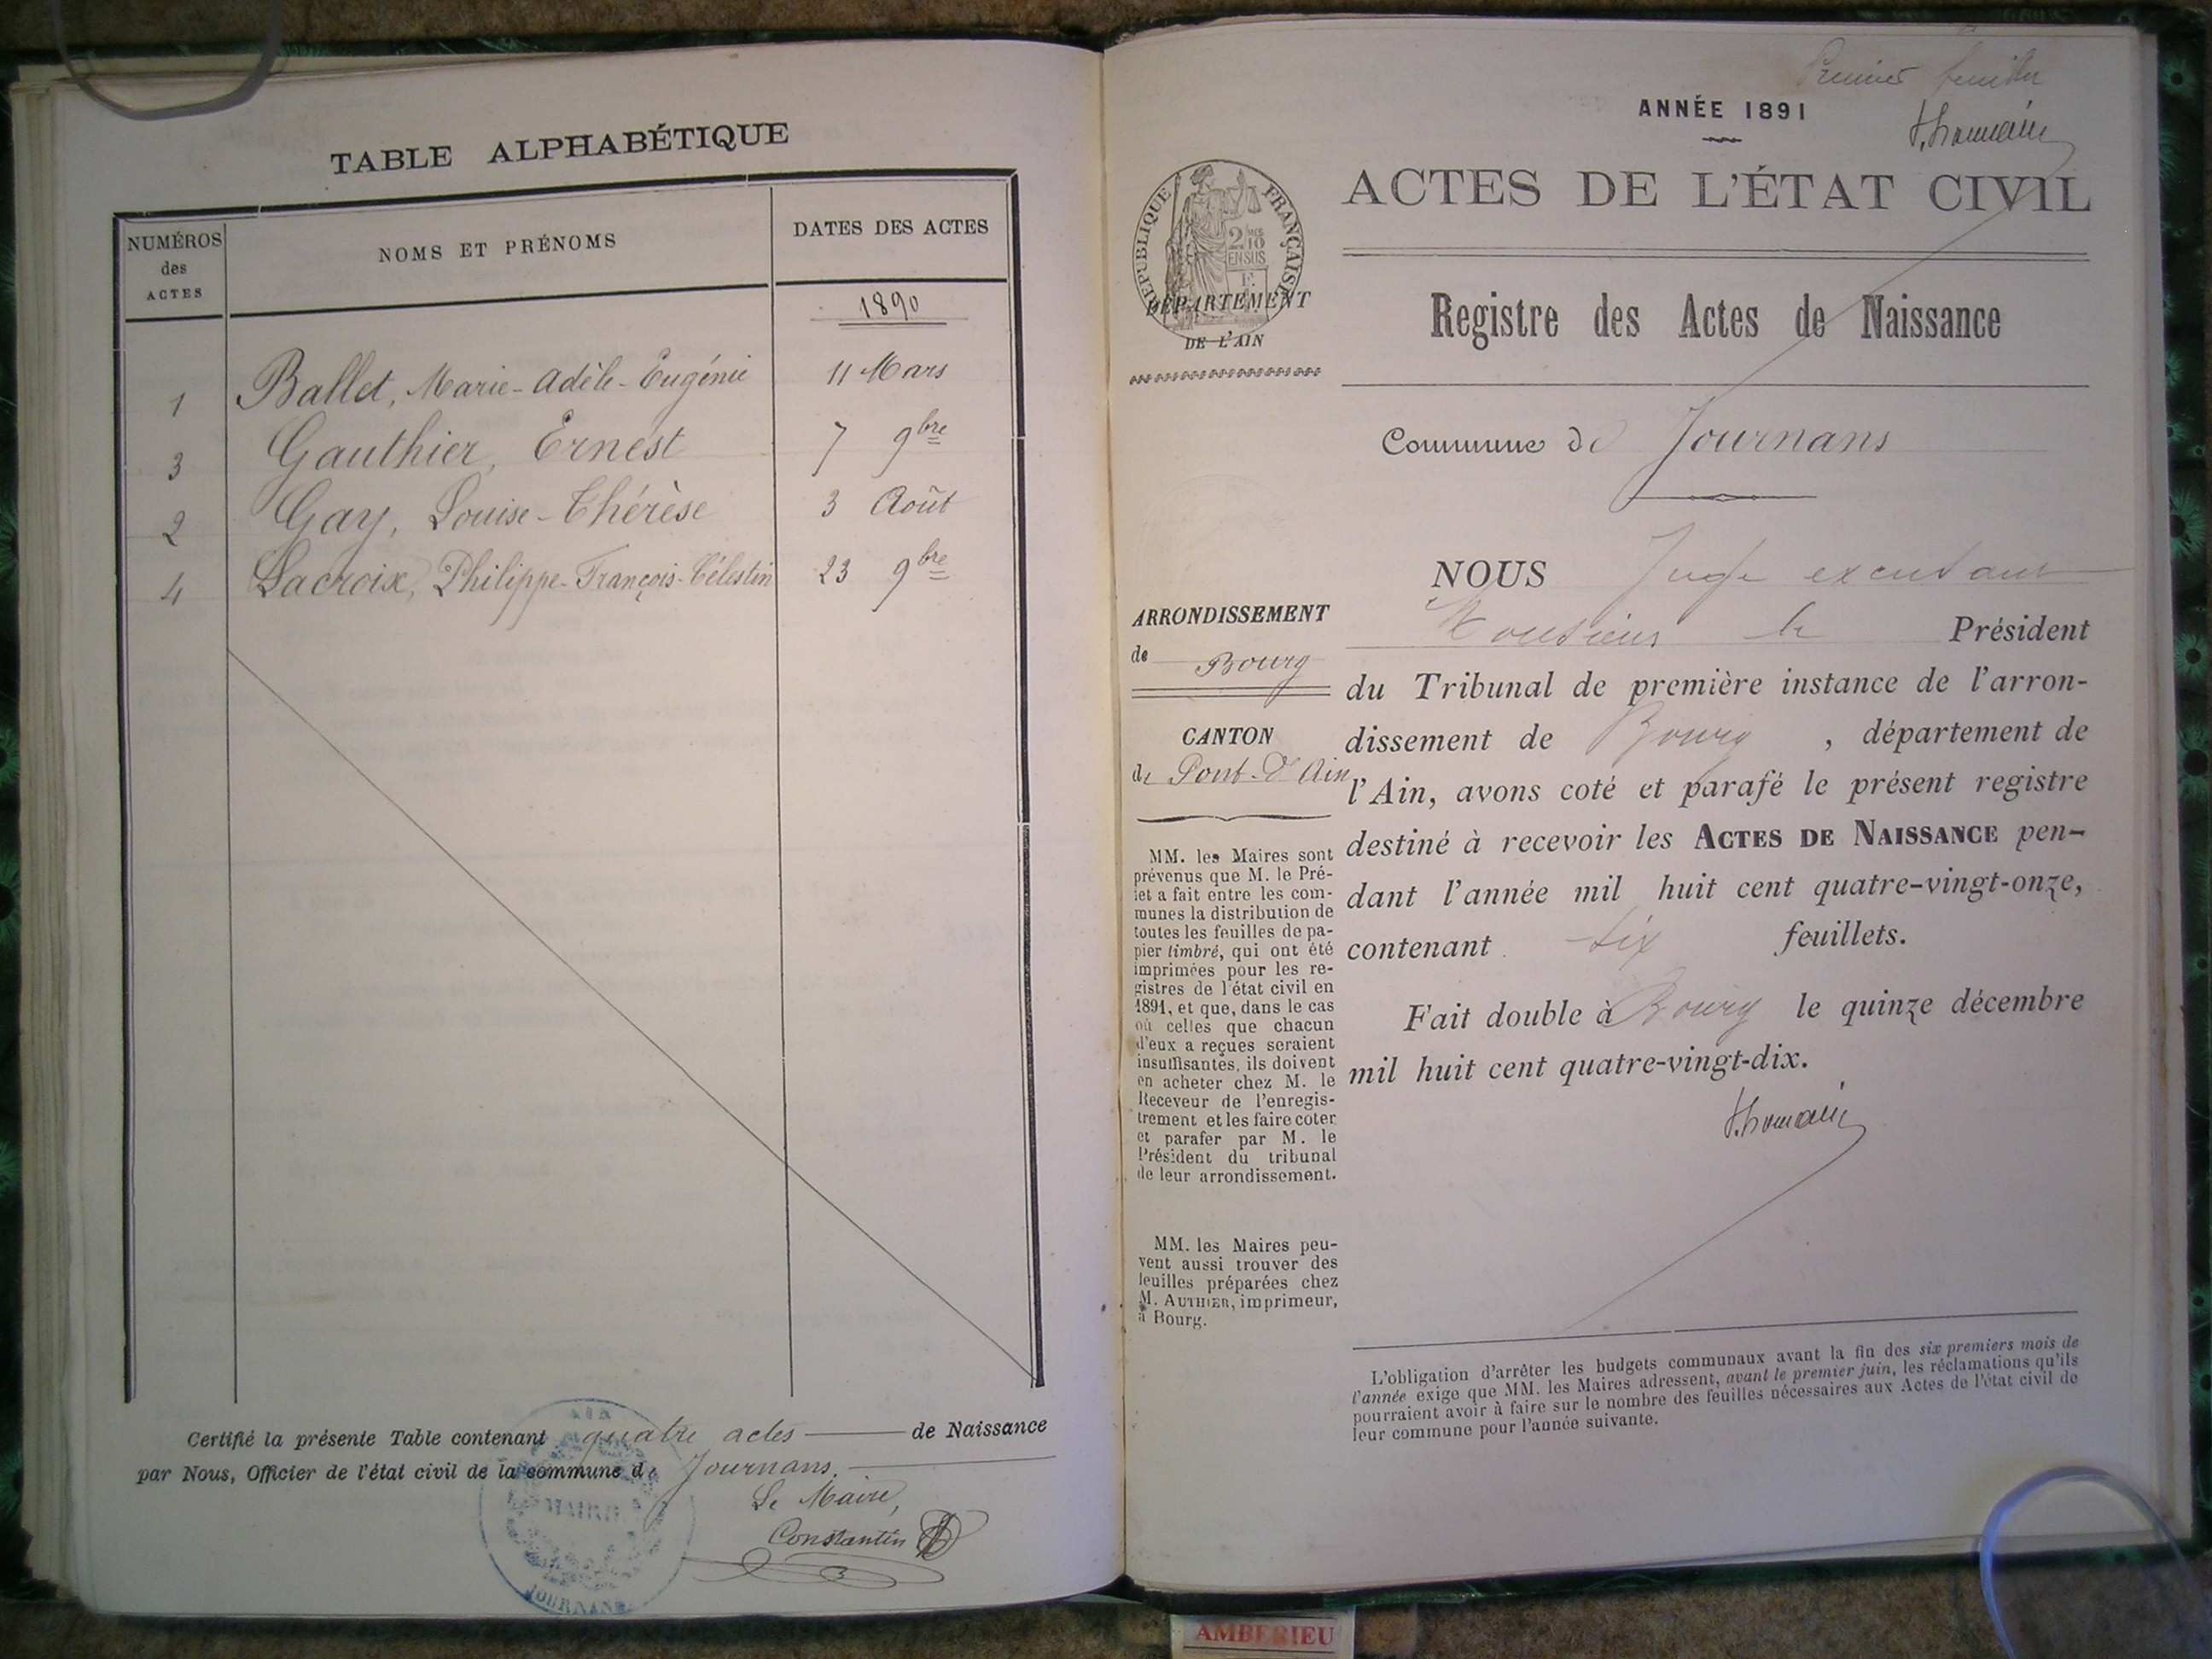 TABLE ALPHABÉTIQUE
NUMÉROS
des
ACTES
NOMS ET PRÉNOMS
DATES DES ACTES
1890
1 Ballet, Marie-Adèle-Eugénie 11 Mars
3 Gauthier, Ernest 7 9bre
2 Gay, Louise-Thérèse 3 Août
4 Lacroix, Philippe-François-Célestin 23 9bre
Certifié la présente Table contenant quatre actes de Naissance
par Nous, Officier de l'état civil de la commune de Journans.
Le Maire,
Constantin
MAIRIE
JOURNANS
Premier feuillet
ANNÉE 1891
ACTES DE L'ÉTAT CIVIL
RÉPUBLIQUE FRANÇAISE
2/10
EN SUS
DÉPARTEMENT
DE L'AIN
Registre des Actes de Naissance
Commune de Journans
ARRONDISSEMENT
de Bourg
CANTON
de Pont-d'Ain
MM. les Maires sont
prévenus que M. le Pré-
fet a fait entre les com-
munes la distribution de
toutes les feuilles de pa-
pier timbré, qui ont été
imprimées pour les re-
gistres de l'état civil en
1891, et que, dans le cas
où celles que chacun
d'eux a reçues seraient
insuffisantes, ils doivent
en acheter chez M. le
Receveur de l'enregis-
trement et les faire coter
et parafer par M. le
Président du tribunal
de leur arrondissement.
MM. les Maires peu-
vent aussi trouver des
feuilles préparées chez
M. AUTHIER, imprimeur,
à Bourg.
NOUS Juge
Monsieur le Président
du Tribunal de première instance de l'arron-
dissement de Bourg, département de
l'Ain, avons coté et parafé le présent registre
destiné à recevoir les ACTES DE NAISSANCE pen-
dant l'année mil huit cent quatre-vingt-onze,
contenant six feuillets.
Fait double à Bourg le quinze décembre
mil huit cent quatre-vingt-dix.
L'obligation d'arrêter les budgets communaux avant la fin des six premiers mois de
l'année exige que MM. les Maires adressent, avant le premier juin, les réclamations qu'ils
pourraient avoir à faire sur le nombre des feuilles nécessaires aux Actes de l'état civil de
leur commune pour l'année suivante.
AMBERIEU